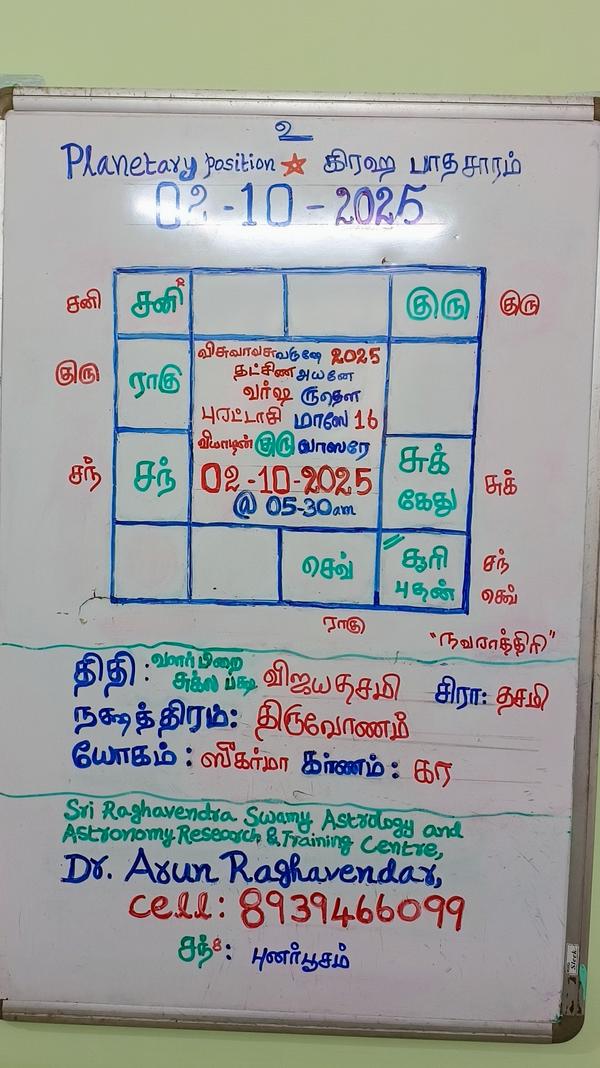 உ
Planetary position ☆ கிரஹ பாதசாரம்
02-10-2025
சனி சனி R குரு குரு
விசுவாவசு வருஷே 2025
தட்சிண அயனே
குரு ராகு வர்ஷ ருதௌ
புரட்டாசி மாஸே 16
வியாழன் குரு வாஸரே
சந் சந் 02-10-2025 சுக் கேது சுக்
@ 05-30am
செவ் சூரி புதன் சந் செவ்
ராகு
"நவராத்திரி"
திதி : வளர்பிறை சுக்ல பக்ஷ விஜயதசமி சிரா: தசமி
நக்ஷத்திரம்: திருவோணம்
யோகம் : ஸீகர்மா கர்ணம் : கர
Sri Raghavendra Swamy Astrology and
Astronomy Research & Training Centre,
Dr. Arun Raghavendar,
Cell: 8939466099
சந் 8 : புனர்பூசம்